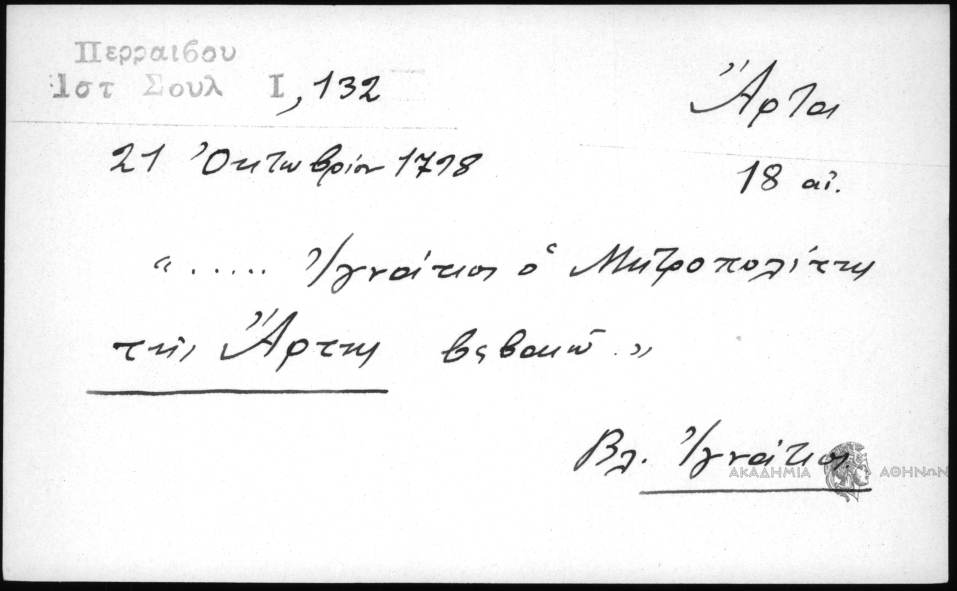 Περραιβου
Ἱστ Σουλ Ι, 132
Ἄρτα
21 Ὀκτωβρίου 1798
18 αἰ.
“ ..... Ἰγνάτιος ὁ Μητροπολίτης
τῆς Ἄρτης βεβαιῶ. ”
Βλ. Ἰγνάτιος.
ΑΚΑΔΗΜΙΑ ΑΘΗΝΩΝ